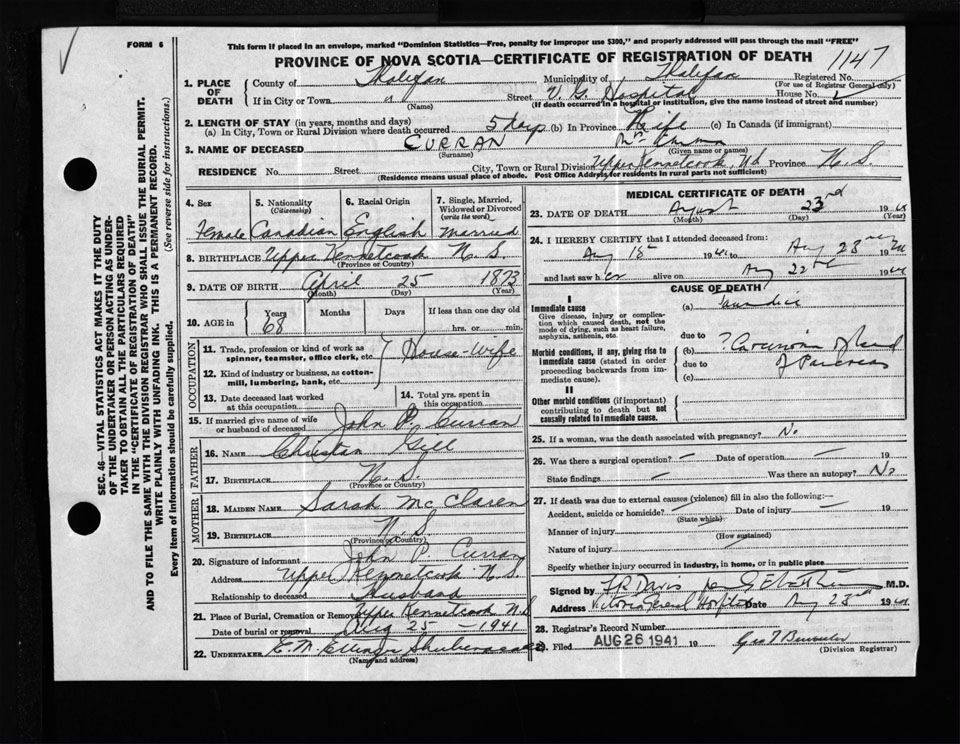 FORM 6
This form if placed in an envelope, marked "Dominion Statistics—Free, penalty for improper use $300," and properly addressed will pass through the mail "FREE"
PROVINCE OF NOVA SCOTIA—CERTIFICATE OF REGISTRATION OF DEATH 1147
SEC. 46—VITAL STATISTICS ACT MAKES IT THE DUTY
OF THE UNDERTAKER OR PERSON ACTING AS UNDER-
TAKER TO OBTAIN ALL THE PARTICULARS REQUIRED
IN THE "CERTIFICATE OF REGISTRATION OF DEATH" AND TO FILE THE SAME WITH THE DIVISION REGISTRAR WHO SHALL ISSUE THE BURIAL PERMIT.
WRITE PLAINLY WITH UNFADING INK. THIS IS A PERMANENT RECORD.
Every item of information should be carefully supplied. (See reverse side for instructions.)
1. PLACE OF DEATH
County of Halifax Municipality of Halifax Registered No.
(For use of Registrar General only)
If in City or Town (Name) Street V. G. Hospital House No.
(If death occurred in a hospital or institution, give the name instead of street and number)
2. LENGTH OF STAY (in years, months and days)
(a) In City, Town or Rural Division where death occurred 5 days (b) In Province Life (c) In Canada (if immigrant)
3. NAME OF DECEASED CURRAN
(Surname) (Given name or names)
RESIDENCE No. Street City, Town or Rural Division Upper Kennetcook, Province N. S.
(Residence means usual place of abode. Post Office Address for residents in rural parts not sufficient)
4. Sex Female
5. Nationality (Citizenship) Canadian
6. Racial Origin English
7. Single, Married, Widowed or Divorced (write the word) Married
8. BIRTHPLACE Upper Kennetcook N. S.
(Province or Country)
9. DATE OF BIRTH April 25 1873
(Month) (Day) (Year)
10. AGE in Years 68 Months Days If less than one day old hrs. or min.
OCCUPATION
11. Trade, profession or kind of work as spinner, teamster, office clerk, etc. House-Wife
12. Kind of industry or business, as cotton-mill, lumbering, bank, etc.
13. Date deceased last worked at this occupation 14. Total yrs. spent in this occupation
15. If married give name of wife or husband of deceased John P. Curran
FATHER
16. NAME Christian
17. BIRTHPLACE N. S.
(Province or Country)
MOTHER
18. MAIDEN NAME Sarah McClaren
19. BIRTHPLACE N. S
(Province or Country)
20. Signature of informant John P. Curran
Address Upper Kennetcook N. S.
Relationship to deceased Husband
21. Place of Burial, Cremation or Removal Upper Kennetcook N. S
Date of burial or removal Aug 25 - 1941
22. UNDERTAKER E. M.
(Name and address)
MEDICAL CERTIFICATE OF DEATH
23. DATE OF DEATH August 23rd 19
(Month) (Day) (Year)
24. I HEREBY CERTIFY that I attended deceased from:
Aug 18 1941 to Aug 23
and last saw her alive on Aug 22nd 1941
CAUSE OF DEATH
I
Immediate cause
Give disease, injury or complication which caused death, not the mode of dying, such as heart failure, asphyxia, asthenia, etc.
(a) Jaundice
due to
Morbid conditions, if any, giving rise to immediate cause (stated in order proceeding backwards from immediate cause).
(b) ? Carcinoma of head
due to of Pancreas
(c)
II
Other morbid conditions (if important) contributing to death but not causally related to immediate cause.
25. If a woman, was the death associated with pregnancy? No
26. Was there a surgical operation? — Date of operation — 19
State findings — Was there an autopsy? No
27. If death was due to external causes (violence) fill in also the following:—
Accident, suicide or homicide? Date of injury 19
(State which)
Manner of injury
(How sustained)
Nature of injury
Specify whether injury occurred in industry, in home, or in public place
Signed by F R Davis M.D.
Address Victoria General Hospital Date Aug 23rd 1941
28. Registrar's Record Number
29. Filed AUG 26 1941 19
(Division Registrar)